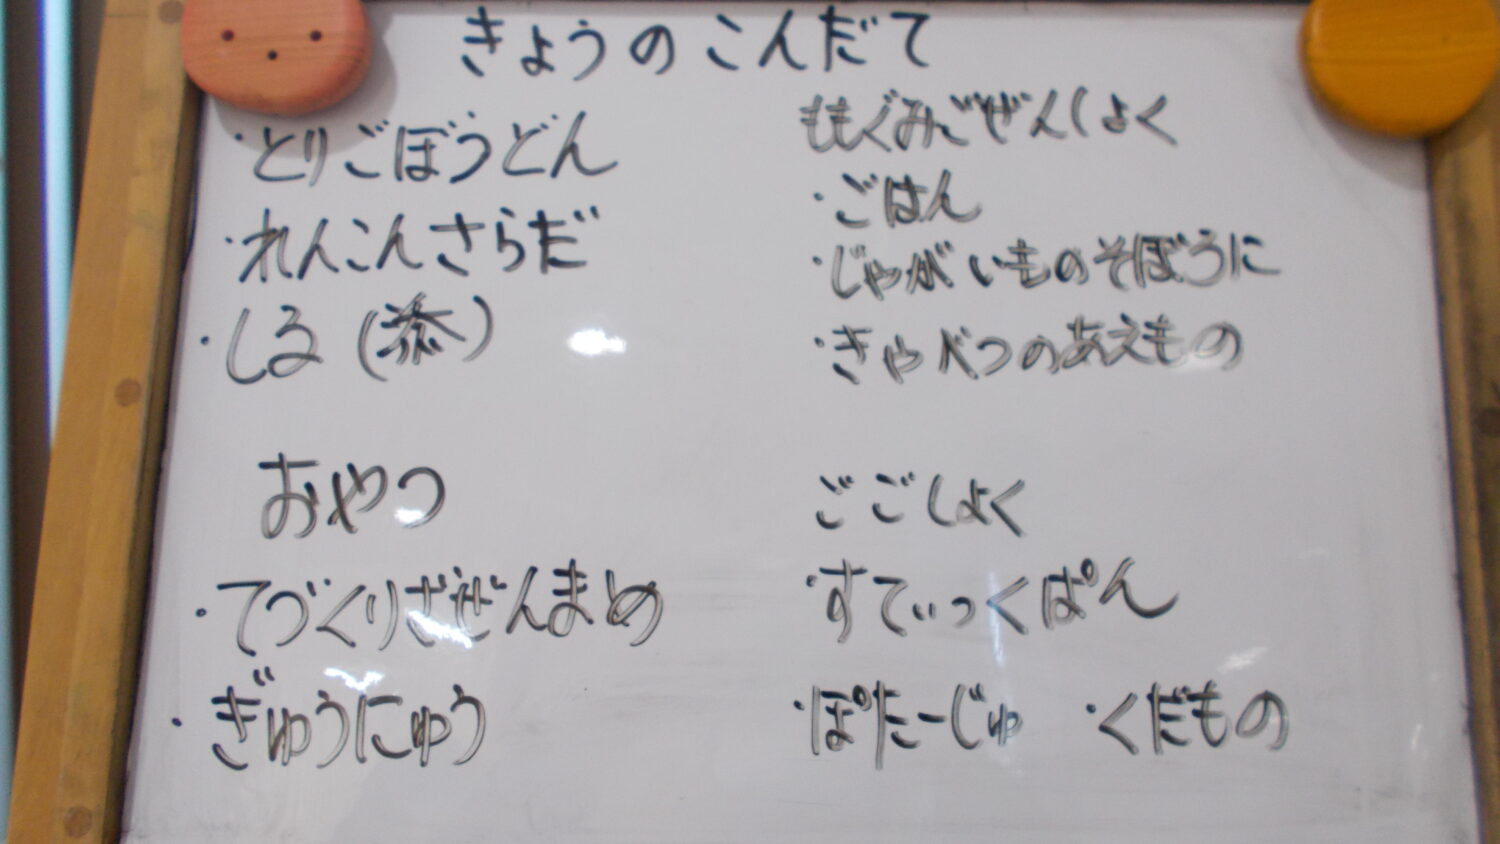 きょうのこんだて
・とりごぼうどん
・れんこんさらだ
・しる(
おやつ
・てづくりざぜんまめ
・ぎゅうにゅう
ももぐみごぜんしょく
・ごはん
・じゃがいものそぼろに
・きゃべつのあえもの
ごごしょく
・すてぃっくぱん
・ぽたーじゅ ・くだもの